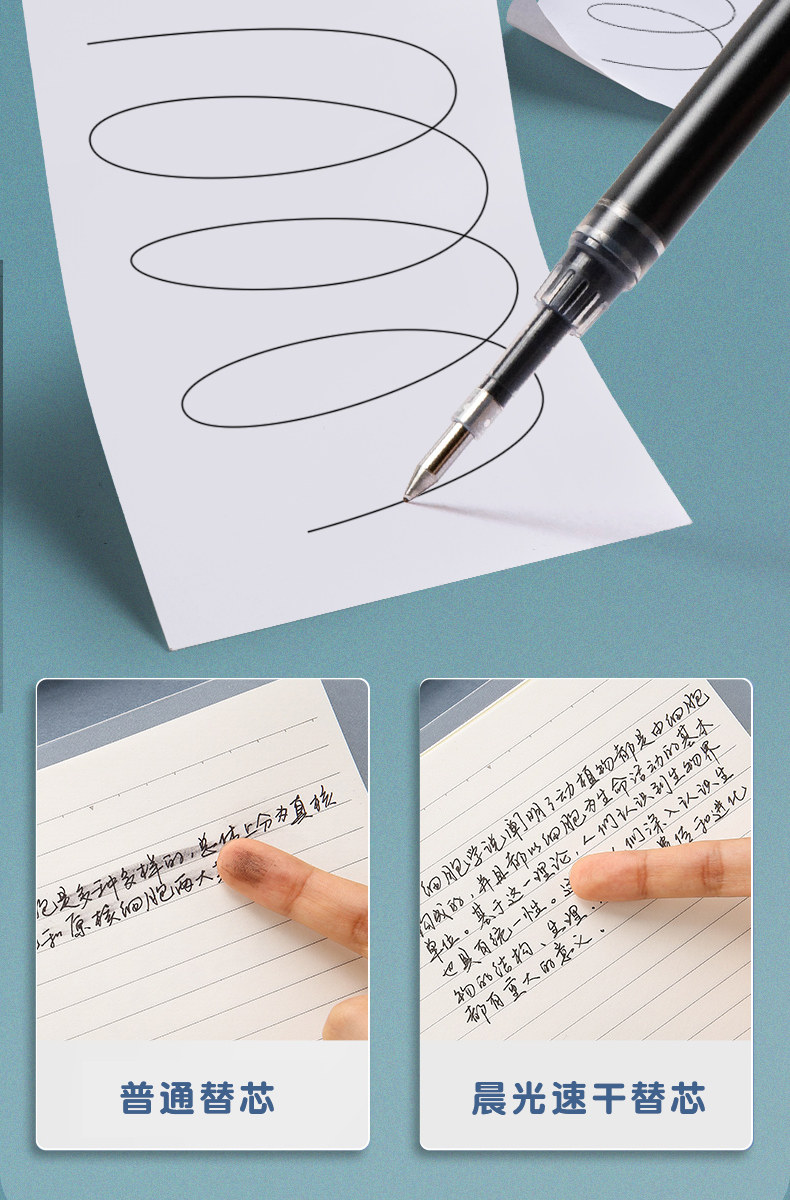 胞是多种多样的，总体上分为真核
和原核细胞两大
细胞学说阐明了动植物都是由细胞
构成的，并且都以细胞为生命活动的基本
单位。基于这一理论，人们认识到生物界
也具有统一性。 们深入认识生
物的结构、生理 遗传和进化
都有重大的意义。
普通替芯
晨光速干替芯